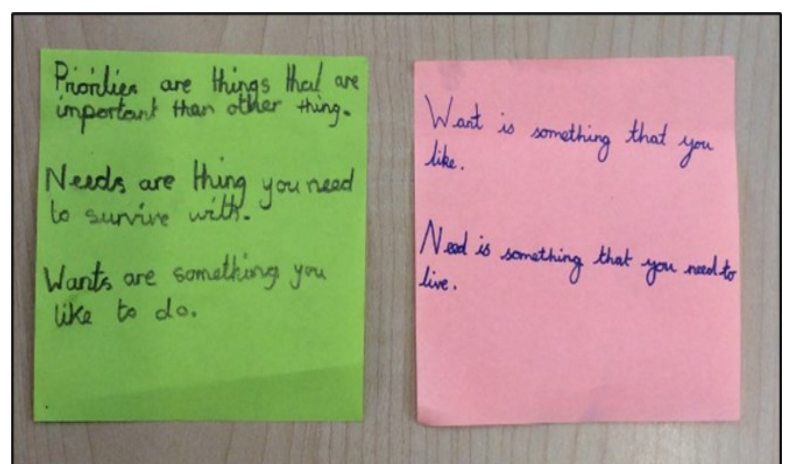 Priorities are things that are
important than other thing.
Needs are thing you need
to survive with.
Wants are something you
like to do.
Want is something that you
like.
Need is something that you need to
live.